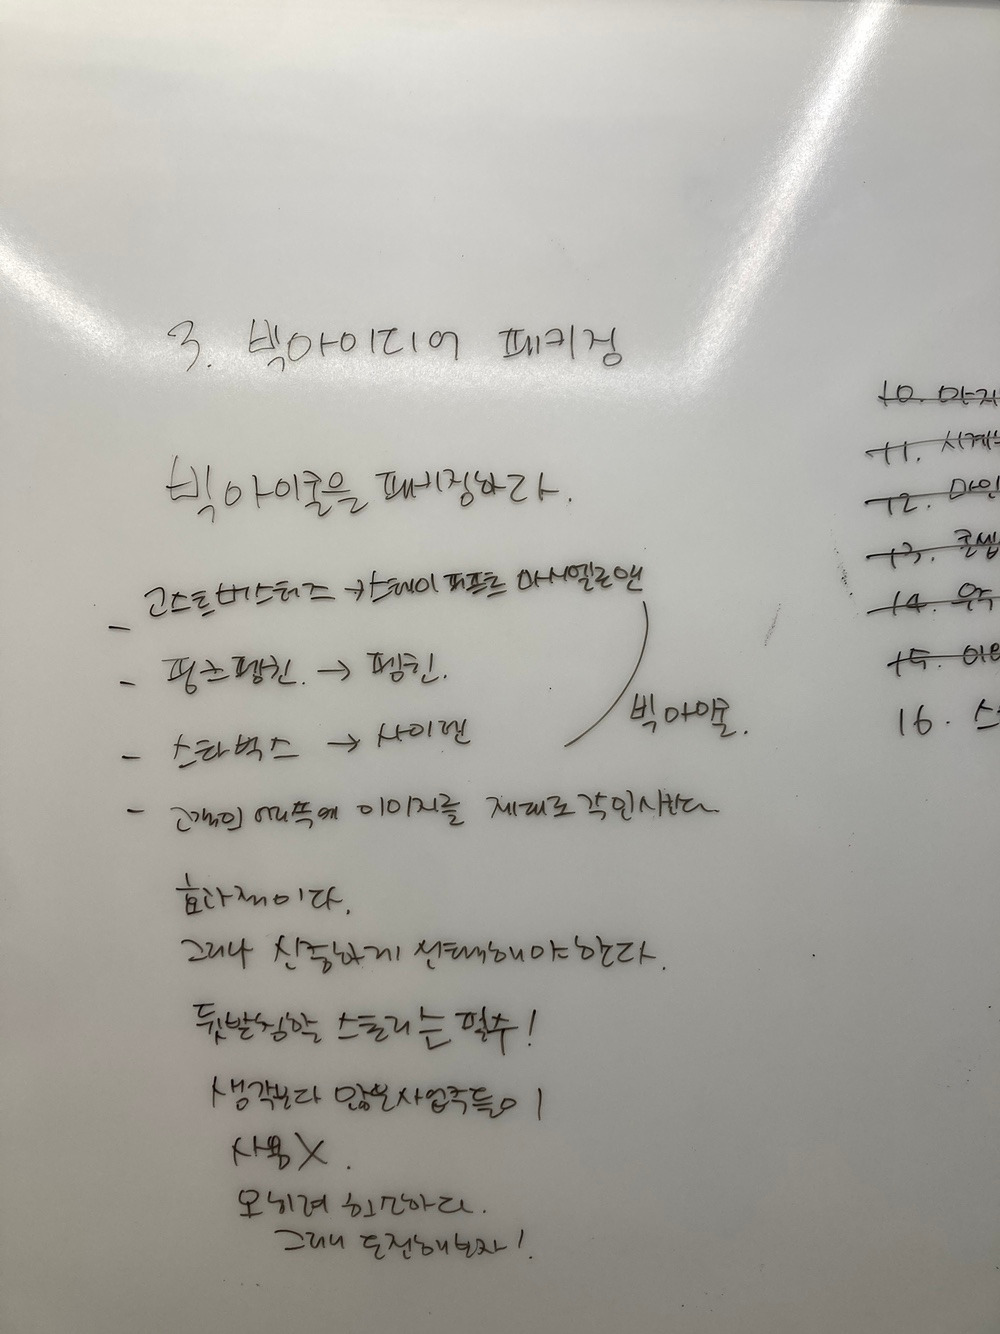 3. 빅아이디어 패키징
빅아이콘을 패키징하라.
고스트버스터즈 → 스테이 퍼프트 마시멜로맨
- 핑크펭귄. → 펭귄.
- 스타벅스 → 사이렌
빅아이콘.
- 고객의 머릿속에 이미지를 제대로 각인시킨다
효과적이다.
그러나 신중하게 선택해야한다.
뒷받침할 스토리는 필수!
생각보다 많은사업주들이
사용X.
오히려 희소하다.
그러니 도전해보자!
10.
11. 시계
12. 마인
13. 콘셉
14. 우주
15.
16. 스